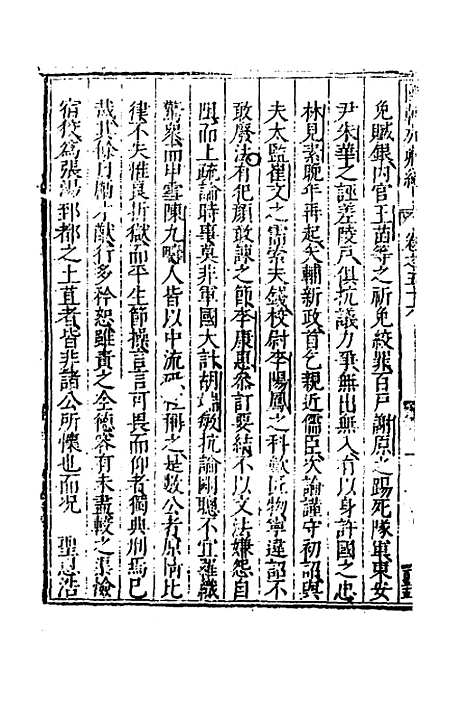 免贓銀內官王萵等之祈免絞罪百戶謝原之踢死隊軍東安
尹朱華之誣差陵戶俱抗議力爭無出無入有以身許國之忠
林見素晚年再起夾輔新政首乞親近儒臣次論謹守初詔與
夫太監崔文之需索夫錢校尉李陽鳳之科斂匠物寧違詔不
敢廢法有犯顏敢諫之節李康惠參訂要結不以文法嫌怨自
阻而上疏論時事莫非軍國大計胡端敏抗論剛聽不宜羅織
驚眾而申雪陳九疇人皆以中流砥柱稱之是數公者原情比
律不失惟良折獄而平生節操言言可畏而仰者獨典刑焉已
哉其餘月勵才猷行多矜恕雖責之全德容有未盡較之渠憸
宿狡為張湯郅都之土苴者皆非諸公所懷也而況 聖恩浩
卷之五十六